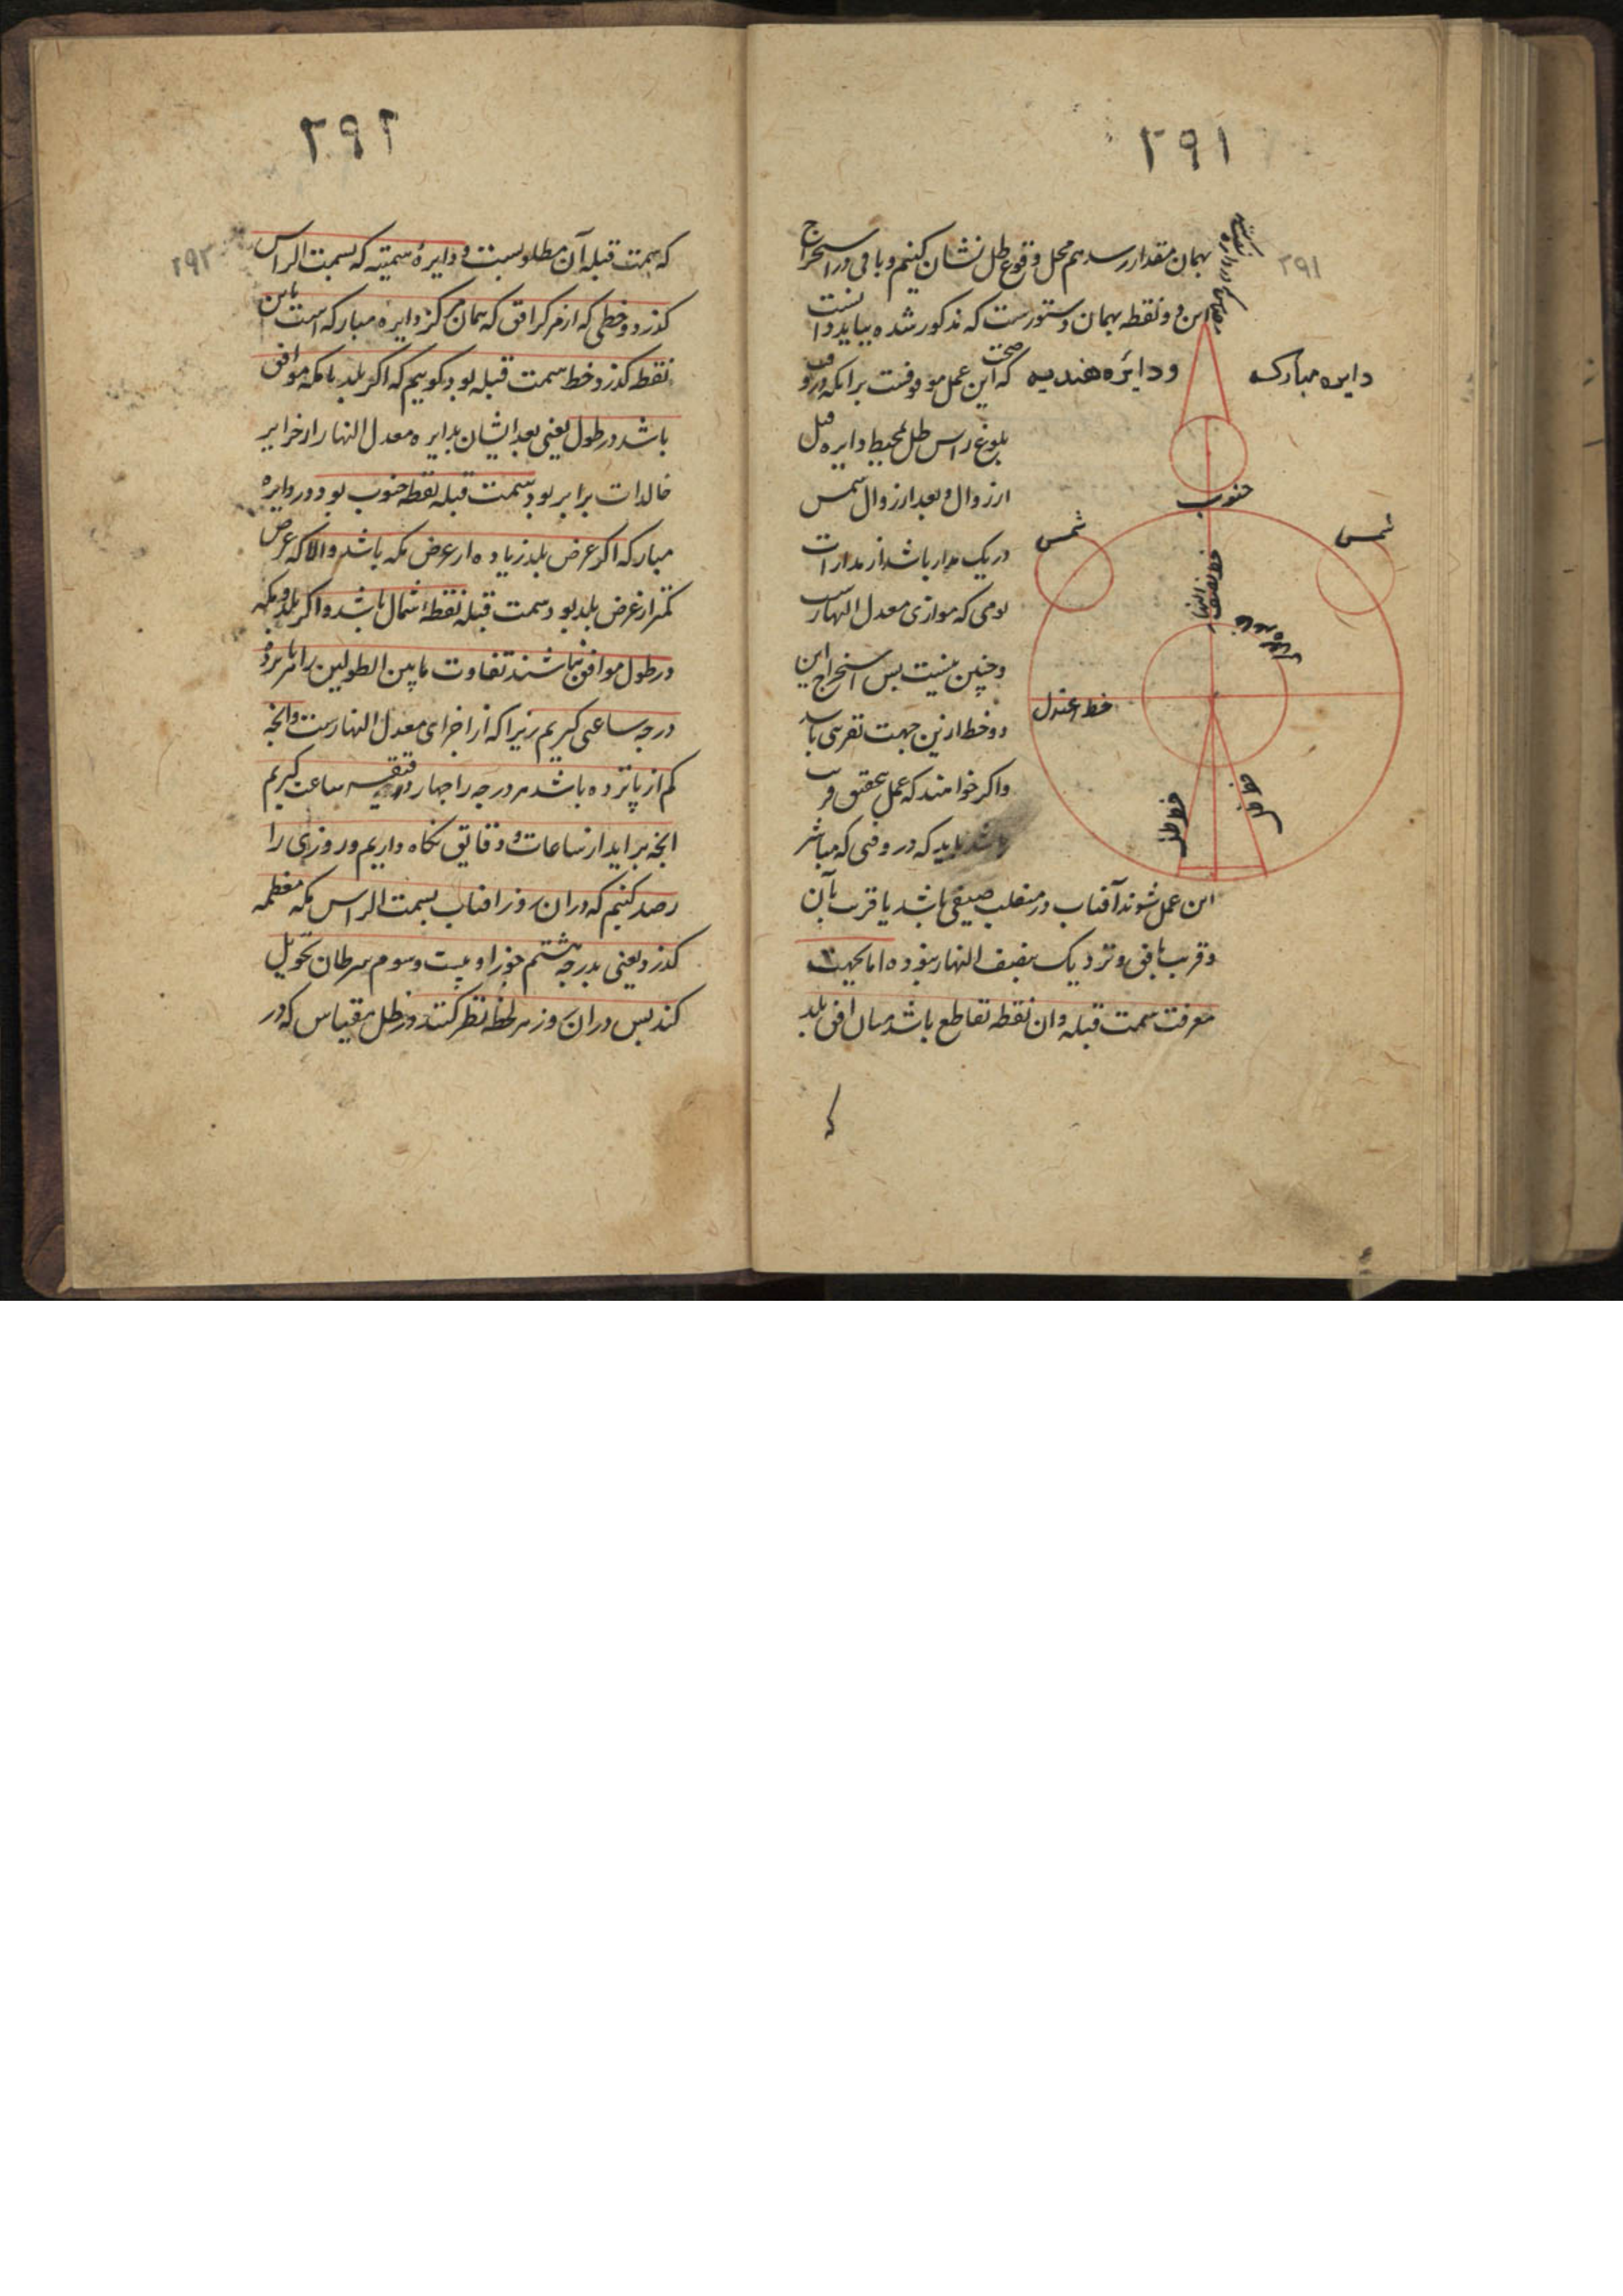 ۲۹۱
۲۹۱
بهمان مقدار رسد هم محل وقوع ظل نشان کنیم و باقی در استخراج
این دو نقطه بهمان دستورست که مذکور شده بباید دانست
دایره مبارک
و دایره هندیه
که صحت این عمل موقوفست برانکه در وقت
بلوغ راس ظل بمحیط دایره قبل
از زوال و بعد از زوال شمس
در یک مدار باشد از مدارات
یومی که موازی معدل النهارست
و چنین نیست پس استخراج این
دو خط ازین جهت تقریبی باشد
و اگر خواهند که عمل بتحقیق قریب
باشد باید که در وقتی که مباشر
این عمل شوند آفتاب در منقلب صیفی باشد یا قریب بآن
و قریب بافق و نزدیک بنصف النهار نبوده اما بجهت
معرفت سمت قبله وان نقطه تقاطع باشد میان افق بلد
که
جنوب
شمس
شمس
خط نصف النهار
خط اعتدل
خط ظل
خط ظل
۲۹۲
۲۹۲
که سمت قبله آن مطلوبست و دایرهٔ سمتیه که بسمت الراس
گذرد و خطی که از مرکز افق که همان مرکز دایره مبارکه است باین
نقطه گذرد خط سمت قبله بود و گوییم که اگر بلد با مکه موافق
باشد در طول یعنی بعد ایشان بدایره معدل النهار از جزایر
خالدات برابر بود سمت قبله نقطه جنوب بود در دایره
مبارکه اگر عرض بلد زیاده از عرض مکه باشد والا که عرض
کمتر از عرض بلد بود سمت قبله نقطهٔ شمال باشد و اگر بلد و مکه
در طول موافق نباشند تفاوت ما بین الطولین را هر پانزده
درجه ساعتی گیریم زیرا که از اجزای معدل النهارست و انچه
کم از پانزده باشد هر درجه را چهار دقیقه ساعت گیریم
انچه براید از ساعات و دقایق نگاه داریم و روزی را
رصد کنیم که دران روز افتاب بسمت الراس مکه معظمه
گذرد یعنی بدرجه هشتم جوزا و بیست و سوم سرطان تحویل
کند پس دران روز هر لحظه نظر کنند در ظل مقیاس که در